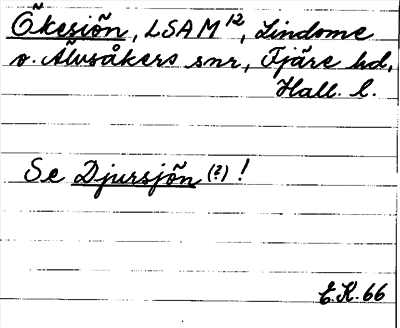 Ökesiön, LSAM 12, Lindome
o. Älvsåkers snr, Fjäre hd,
Hall. l.
Se Djursjön (?) !
E.K. 66